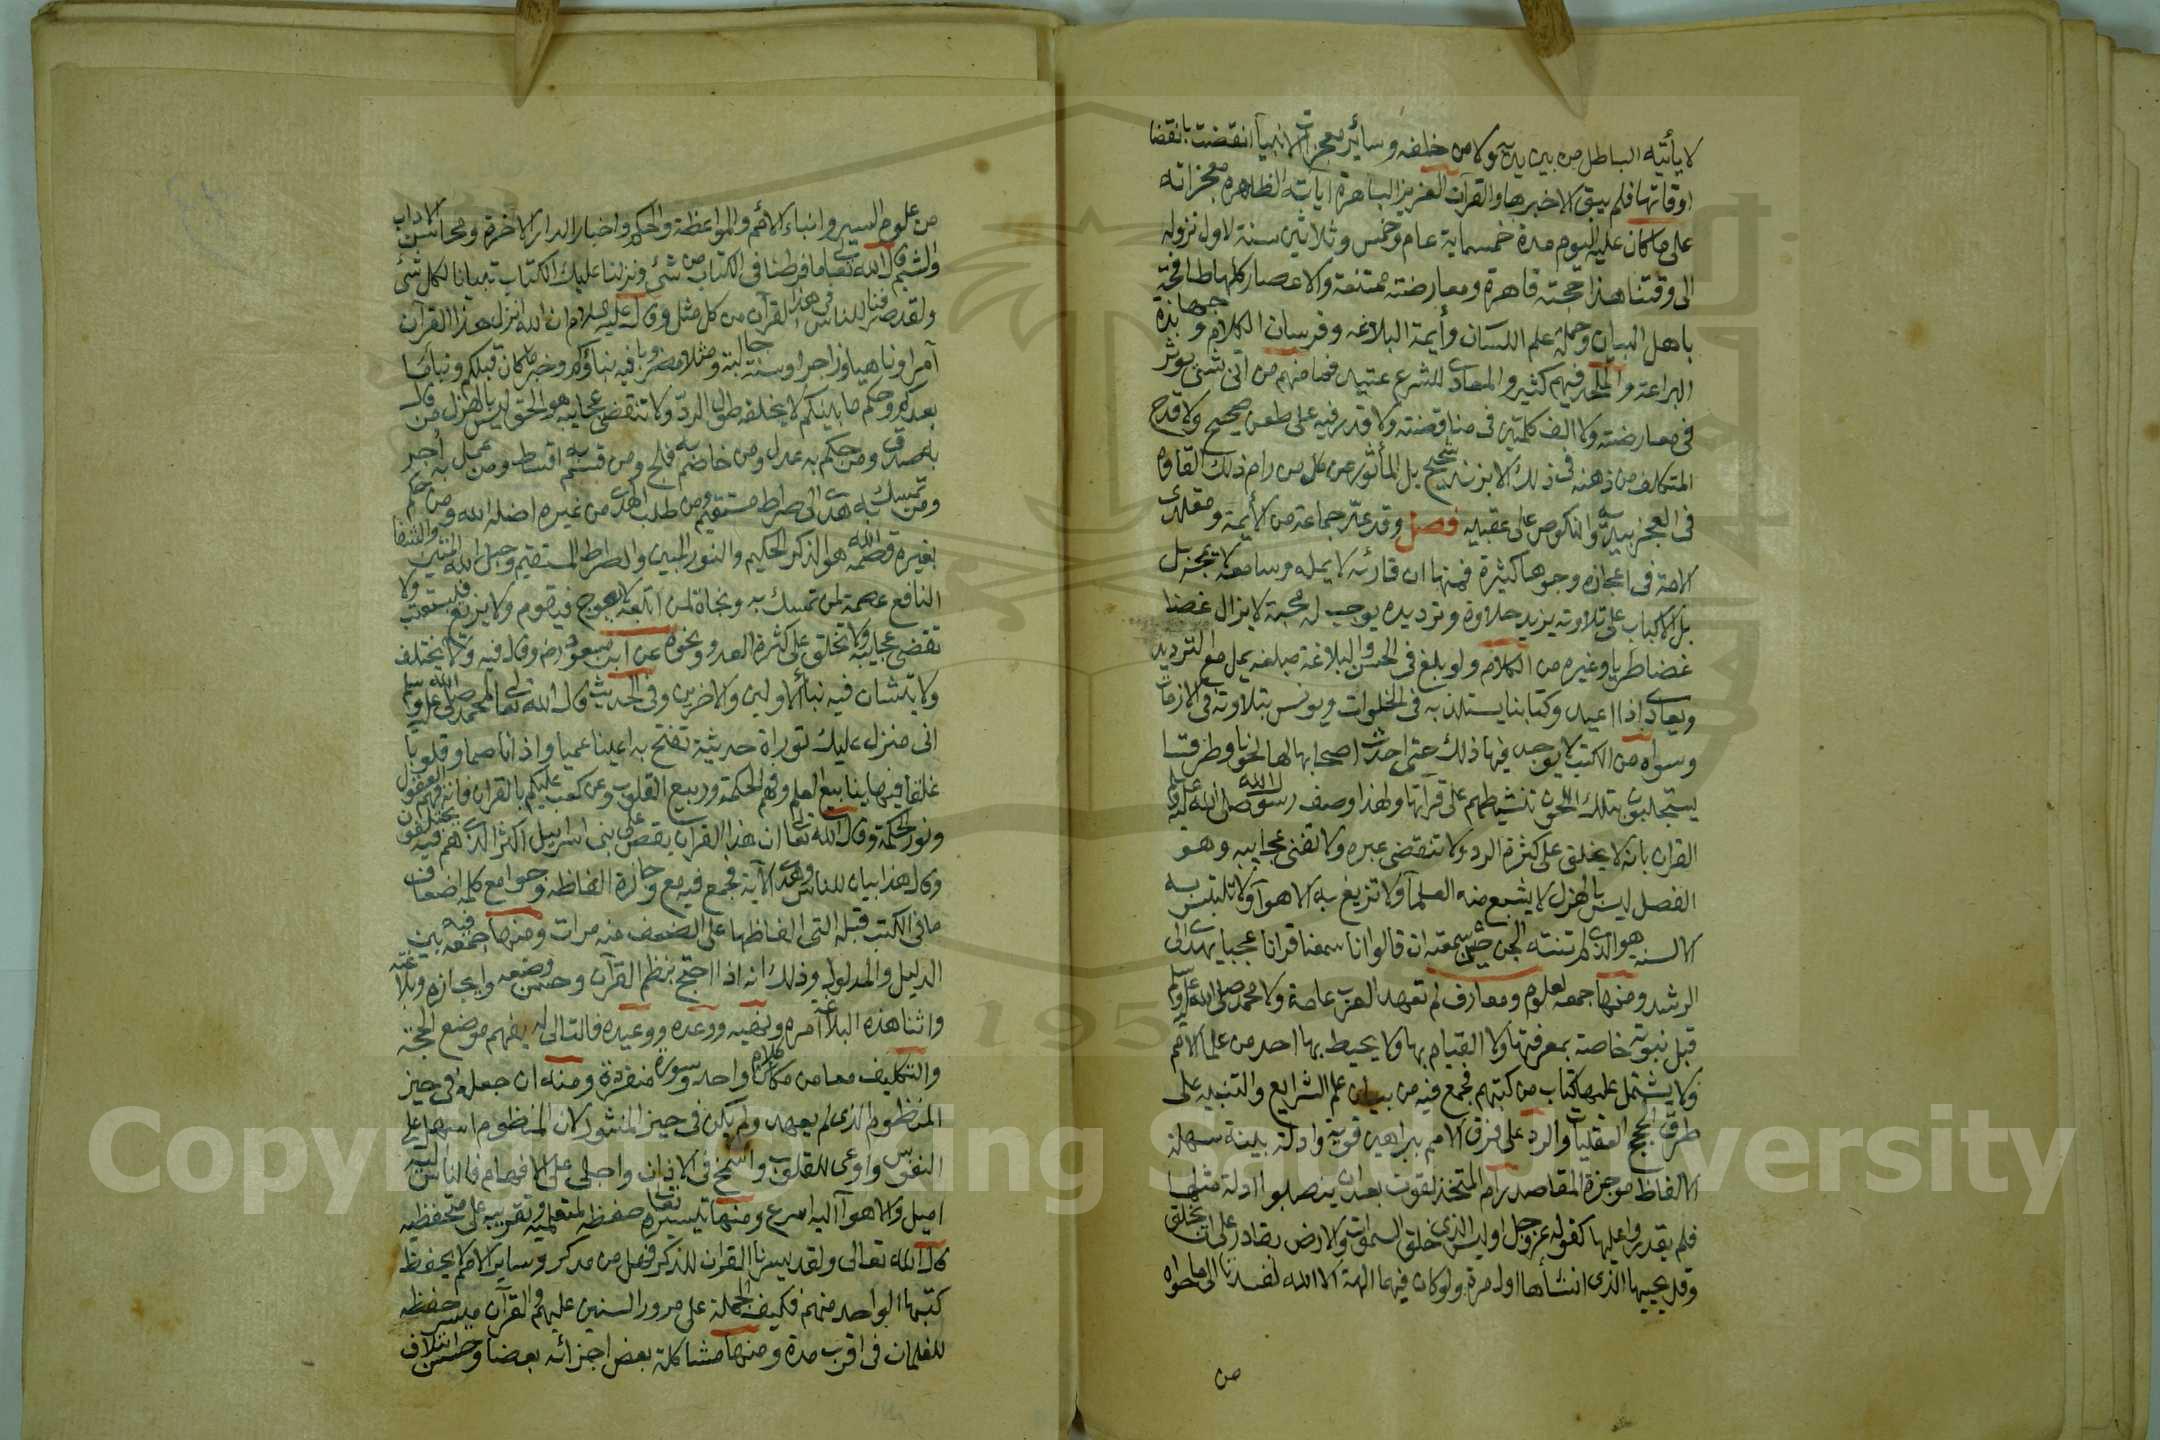 لا يأتيه الباطل من بين يديه ولا من خلفه وسائر معجزات الانبيآ انقضت بانقضا
اوقاتها فلم يبق الا خبرها والقرآن العزيز الباهرة اياته الظاهرة معجزاته
على ما كان عليه اليوم مدة خمسماية عام وخمس وثلاثين سنة لاول نزوله
الى وقتنا هذا حجته قاهرة ومعارضته ممتنعة والاعصار كلها طافحة
باهل البيان وحملة علم اللسان وأيمة البلاغه وفرسان الكلام وجهابذة
البراعة والملحد فيهم كثير والمعادى للشرع عتيد فما منهم من اتى بشئ يوثر
فى معارضته ولا الف كلمتين فى مناقضته ولا قدر فيه على طعن صحيح ولا قدح
المتكلف من ذهنه فى ذلك الا بزند شحيح بل المأثور عن كل من رام ذلك القاؤه
فى العجز بيديه والنكوص على عقبيه فصل وقد عدّ جماعة من الأيمة ومقلدى
الامة فى اعجازه وجوها كثيرة فمنها ان قارئه لا يمله وسامعه لا يمجه بل
بل الاكباب على تلاوته يزيد حلاوة وترديده يوجب له محبة لا يزال غضا
غضا طريا وغيره من الكلام ولو بلغ فى الحسن والبلاغة مبلغه يمل مع الترديد
ويعادى اذا اعيد وكتابنا يستلذ به فى الخلوات ويونس بتلاوته فى الازمات
وسواه من الكتب لا يوجد فيها ذلك حتى احدث اصحابها لها لحونا وطرقتا
يستجلبون بتلك اللحون تنشيطهم على قرآتها ولهذا وصف رسول الله صلى الله عليه وسلم
القران بانه لا يخلق على كثرة الرد ولا تنقضى عبره ولا تفنى عجايبه وهو
الفصل ليس بالهزل لا يشبع منه العلمآ ولا تزيغ به الاهوآ ولا تلتبس به
الالسنه هو الذى لم تنته الجن حين سمعته ان قالوا انا سمعنا قرانا عجبا يهدى الى
الرشد ومنها جمعه لعلوم ومعارف لم تعهد العرب عامة ولا محمد صلى الله عليه وسلم
قبل نبوته خاصة بمعرفتها ولا القيام بها ولا يحيط بها احد من علما الامم
ولا يشتمل عليها كتاب من كتبهم فجمع فيه من بيان علم الشرايع والتنبيه على
طرق الحجج العقليات والرد على فرق الامم ببراهين قوية وادلة بينة سهلة
الالفاظ موجزة المقاصد رام المتحذلقون بعد ان ينصلبوا ادلة مثلها
فلم يقدروا عليها كقوله عز وجل اوليس الذى خلق السموات والارض بقادر على ان يخلق
وقل يحييها الذى انشأها اول مرة ولو كان فيهما الهة الا الله لفسدتا الى ما حواه
من
من علوم السير وانباء الامم والمواعظة والحكم واخبار الدار الاخرة ومحاسن الاداب
والشيم قال الله تعالى ما فرطنا فى الكتاب من شئ ونزلنا عليك الكتاب تبيانا لكل شئ
ولقد ضربنا للناس فى هذا القرآن من كل مثل وقال عليه السلام ان الله انزل هذا القرآن
آمرا وناهيا وزاجرا وسنة خالية ومثلا مضروبا فيه نباؤكم وخبر ما كان قبلكم ونبأ ما
بعدكم وحكم ما بينكم لا يخلقه طول الردّ ولا تنقضى عجايبه هو الحق ليس بالهزل من قال
به صدق ومن حكم به عدل ومن خاصم به فلج ومن قسم به اقسط ومن عمل به أجر
ومن تمسك به هدى الى صراط مستقيم ومن طلب الهدى من غيره اضله الله ومن حكم
بغيره قصمه الله هو الذكر الحكيم والنور المبين والصراط المستقيم وحبل الله المتين والشفا
النافع عصمة لمن تمسك به ونجاة لمن اتبعه لا يعوج فيقوم ولا يزيغ فيستعتب ولا
تنقضى عجايبه ولا تخلق على كثرة الرد ونحوه عن ابن مسعود رضى وقال فيه ولا يختلف
ولا يتشان فيه نبأ الاولين والاخرين وفى الحديث قال الله تعالى لمحمد صلى الله عليه وسلم
انى منزل عليك توراة حديثة تفتح بها اعينا عميا واذانا صما وقلوبا
غلفا فيها ينابيع العلم وفهم الحكمة وربيع القلوب وعن كعب عليكم بالقران فانه فهم العقول
ونور الحكمة وقال الله تعالى ان هذا القران يقص على بنى اسرايل اكثر الذى هم فيه يختلفون
وقال هذا بيان للناس وهدى الآية فجمع فيه مع وجازة الفاظه وجوامع كلمه اضعاف
ما فى الكتب قبله التى الفاظها على الضعف منه مرات ومنها جمعه فيه بين
الدليل والمدلول وذلك انه اذا احتج بنظم القرآن وحسن وصفه وايجازه وبلاغته
واثنا هذه البلاغة آمره ونهيه ووعده ووعيده فالتالى له يفهم موضع الحجة
والتكليف معا من كلام واحد وسورة منفردة ومنه ان جعله فى حيز
المنظوم الذى لم يعهد ولم يكن فى حيز المنثور لان المنظوم اسهل على
النفوس واوعى للقلوب واسمح فى الاذان واحلى على الافهام فالناس اليه
اميل والاهوآ اليه اسرع ومنها تيسيره تعالى حفظه لمتعلميه وتقريبه على متحفظيه
قال الله تعالى ولقد يسرنا القران للذكر فهل من مدكر وساير الامم لا يحفظ
كتبها الواحد منهم فكيف الجملة على مرور السنين عليهم والقرآن ميسر حفظه
للغلمان فى اقرب مدة ومنها مشاكلة بعض اجزائه بعضا وحسن ائتلاف
Copyright © King Saud University
1957